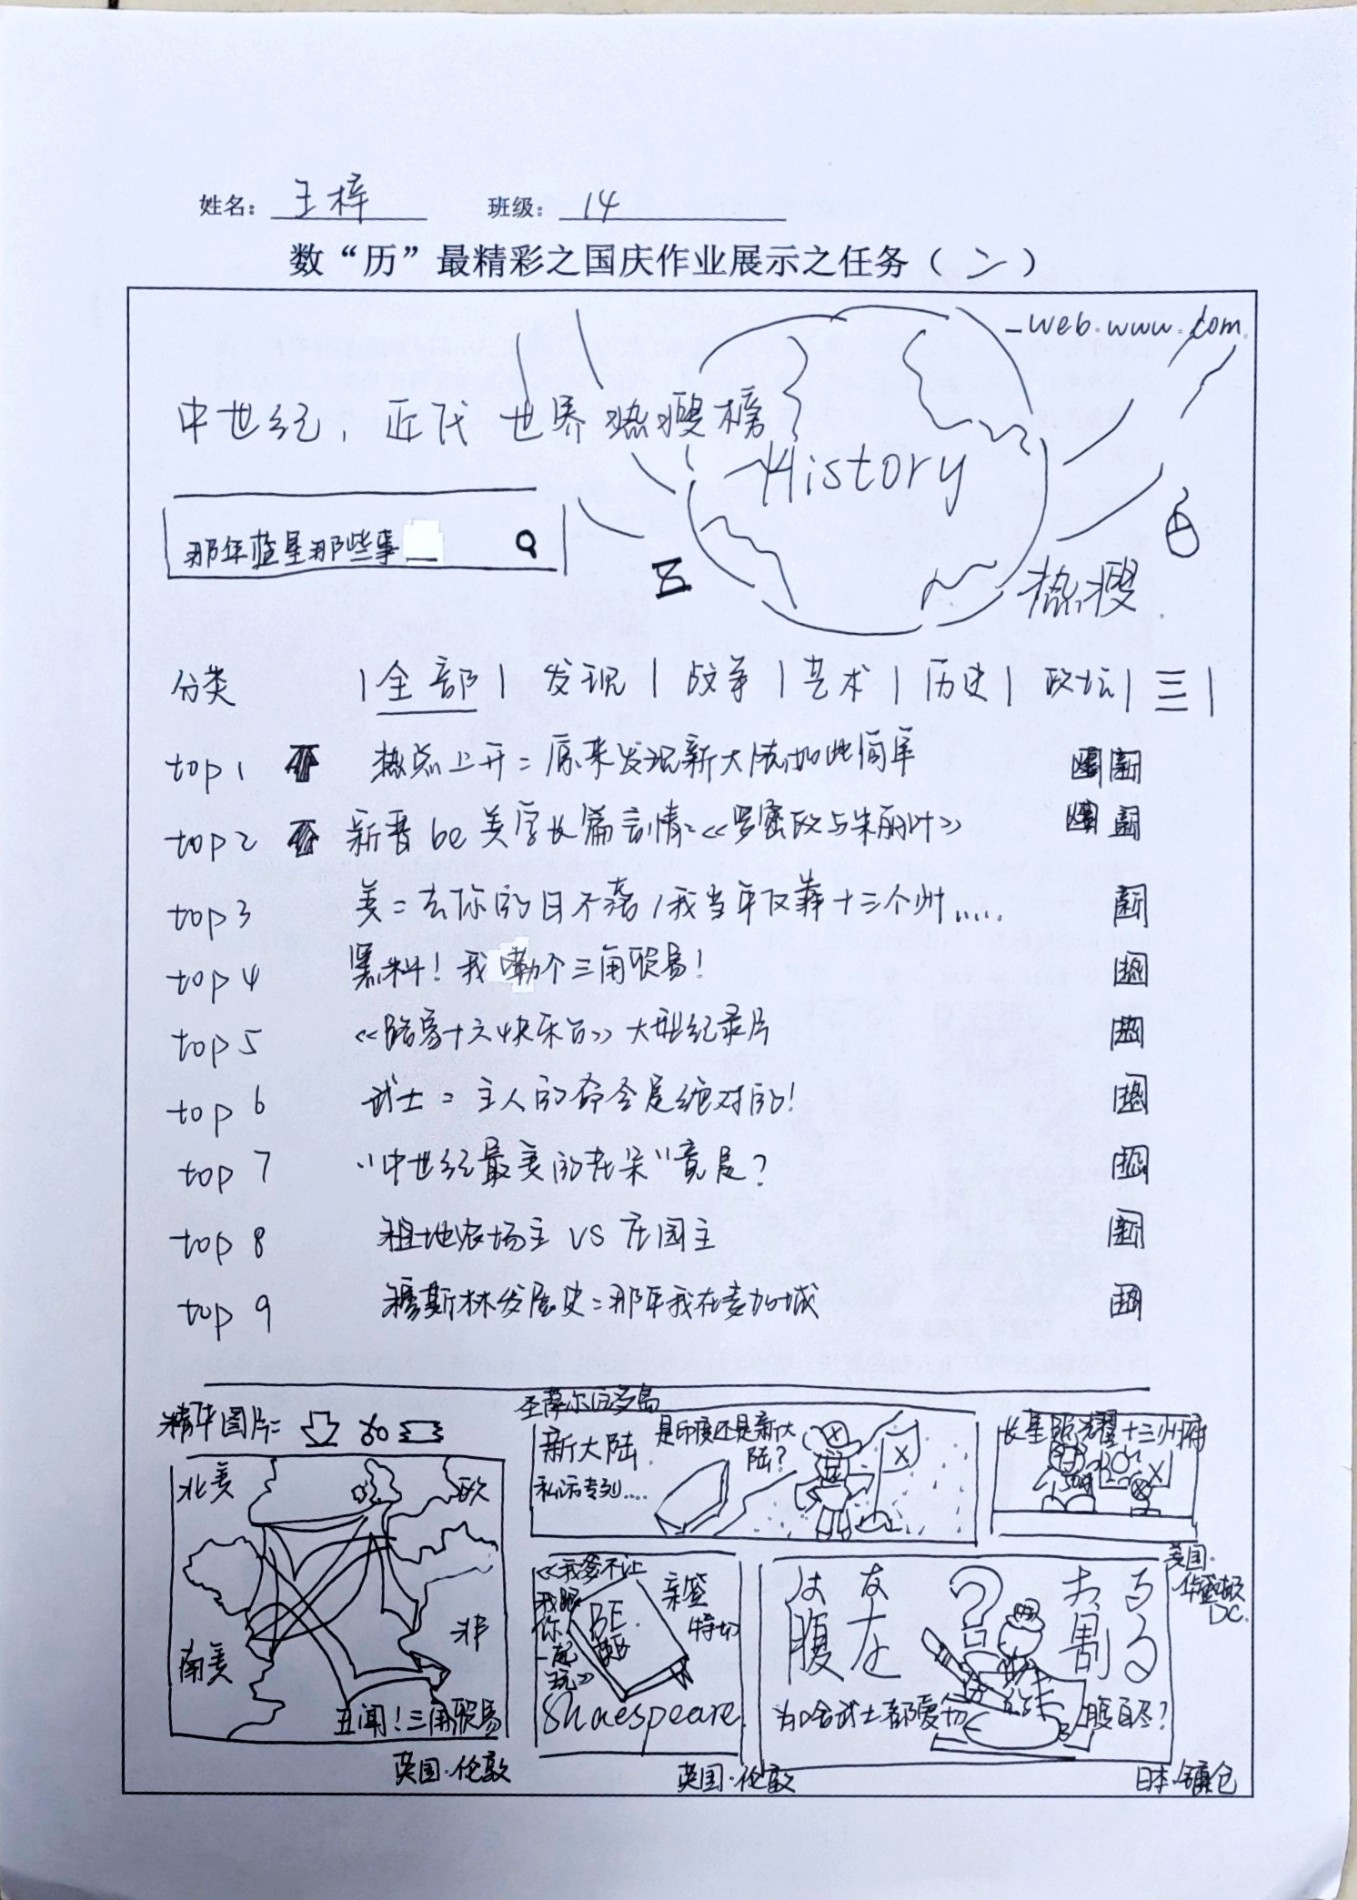 姓名：王梓 班级：14
数“历”最精彩之国庆作业展示之任务（二）
-web.www.com.
中世纪，近代世界热搜榜
History
那年蓝星那些事_
热搜
分类 |全部|发现|战争|艺术|历史|政坛|三|
top 1 热点上升：原来发现新大陆如此简单 爆 新
top 2 新晋be美学长篇言情：《罗密欧与朱丽叶》 爆 新
top 3 美：去你的日不落，我当年仅靠十三个州…… 新
top 4 黑料！我嘞个三角贸易！ 热
top 5 《路易十六快乐台》大型纪录片 热
top 6 武士：主人的命令是绝对的！ 热
top 7 “中世纪最美的花朵”竟是？ 热
top 8 租地农场主 VS 庄园主 新
top 9 穆斯林发展史：那年我在麦加城
精华图片：
圣萨尔瓦多岛
新大陆
私房专列....
是印度还是新大陆？
长星照耀十三州府
美国·华盛顿DC.
北美
欧
南美
非
丑闻！三角贸易
英国·伦敦
《我爹不让我跟你一起玩》
BE
亲签
特切
Shaespeare.
英国·伦敦
はな
腹を
？
お る
割る
为啥武士都爱切腹自尽？
日本·镰仓